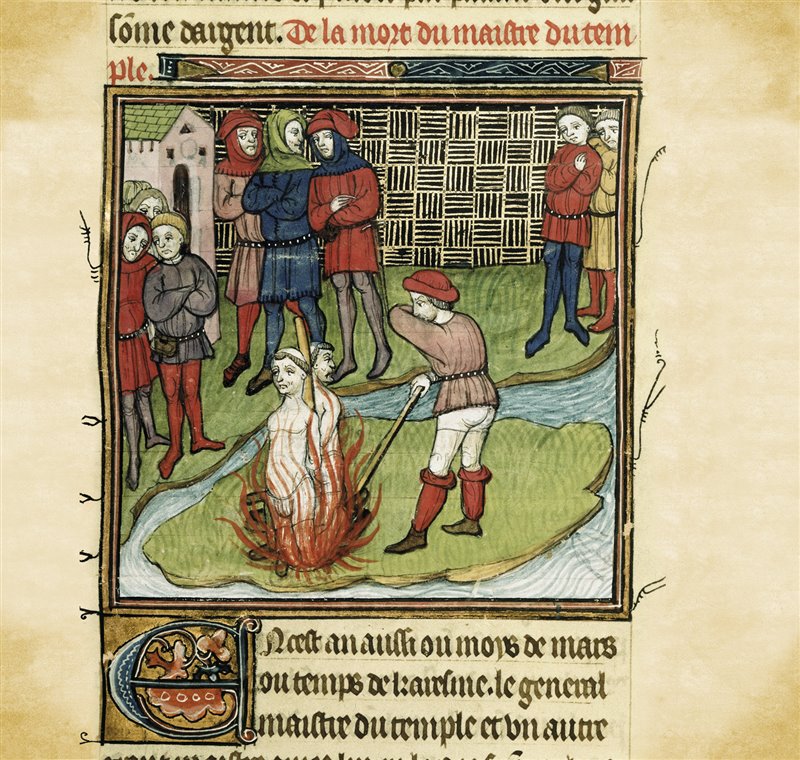 sōme dargent. De la mort du maistre du tem
ple.
En cest an aussi ou moys de mars
ou temps de karesme. le general
maistre du temple et vn autre